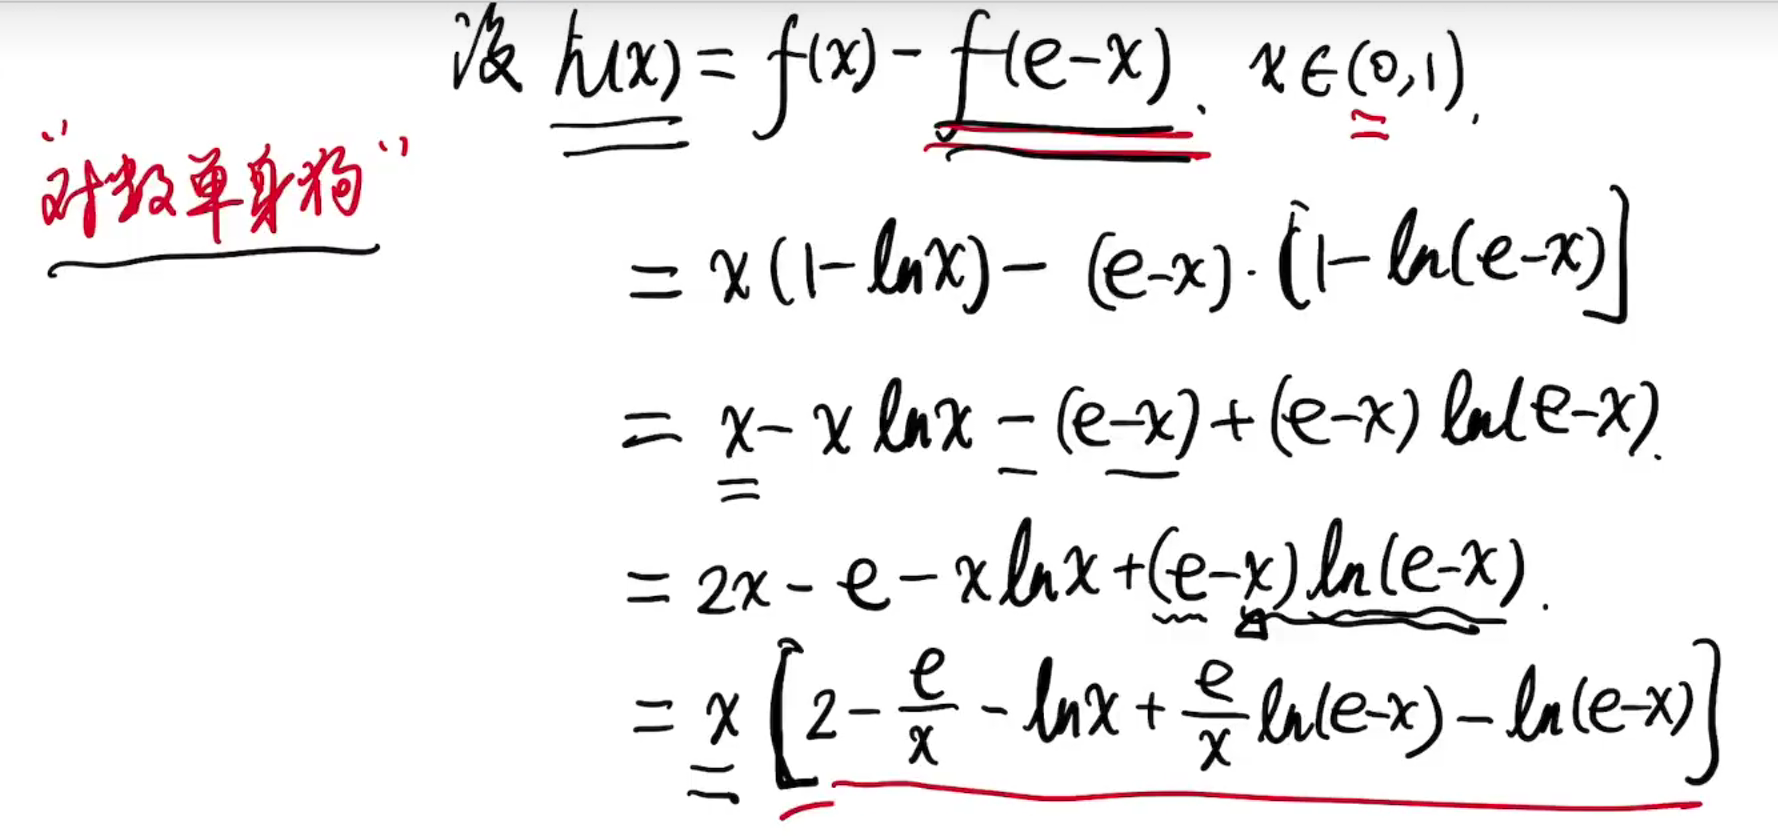 设 h(x) = f(x) - f(e-x). x∈(0,1).
“对数单身狗”
= x(1-lnx) - (e-x)·[1-ln(e-x)]
= x - x lnx - (e-x) + (e-x) ln(e-x).
= 2x - e - x lnx + (e-x) ln(e-x).
= x [2 - e/x - lnx + e/x ln(e-x) - ln(e-x)]